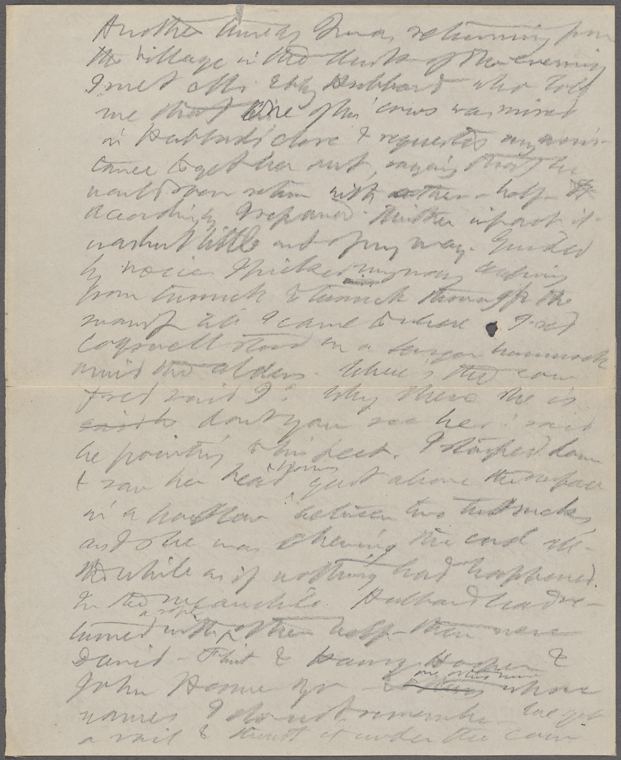 Another time as I was returning from
the village in the dusk of the evening
I met Mr. Eby Hubbard who told
me that one of his cows was mired
in Hubbard's close & requested my assis-
tance to get her out, saying that he
would soon return with other help.
Accordingly I repaired thither in fact it
was but little out of my way. Guided
by voices I picked my way
from tussock to tussock through the
swamp till I came to where Fred
Cogswell stood on a tussock
amid the alders. Where's the cow
Fred said I? Why there she is
don't you see her? said
he pointing to his feet. I stooped down
& saw her head & horns just above the surface
in a hollow between two tussocks
and she was chewing the cud all
the while as if nothing had happened.
In the meanwhile Hubbard had re-
turned with a rope & other help - there were
David Flint & Henry Hosmer &
John Hosmer Jr. - & whose
names I do not remember. We got
a rail & thrust it under the cow